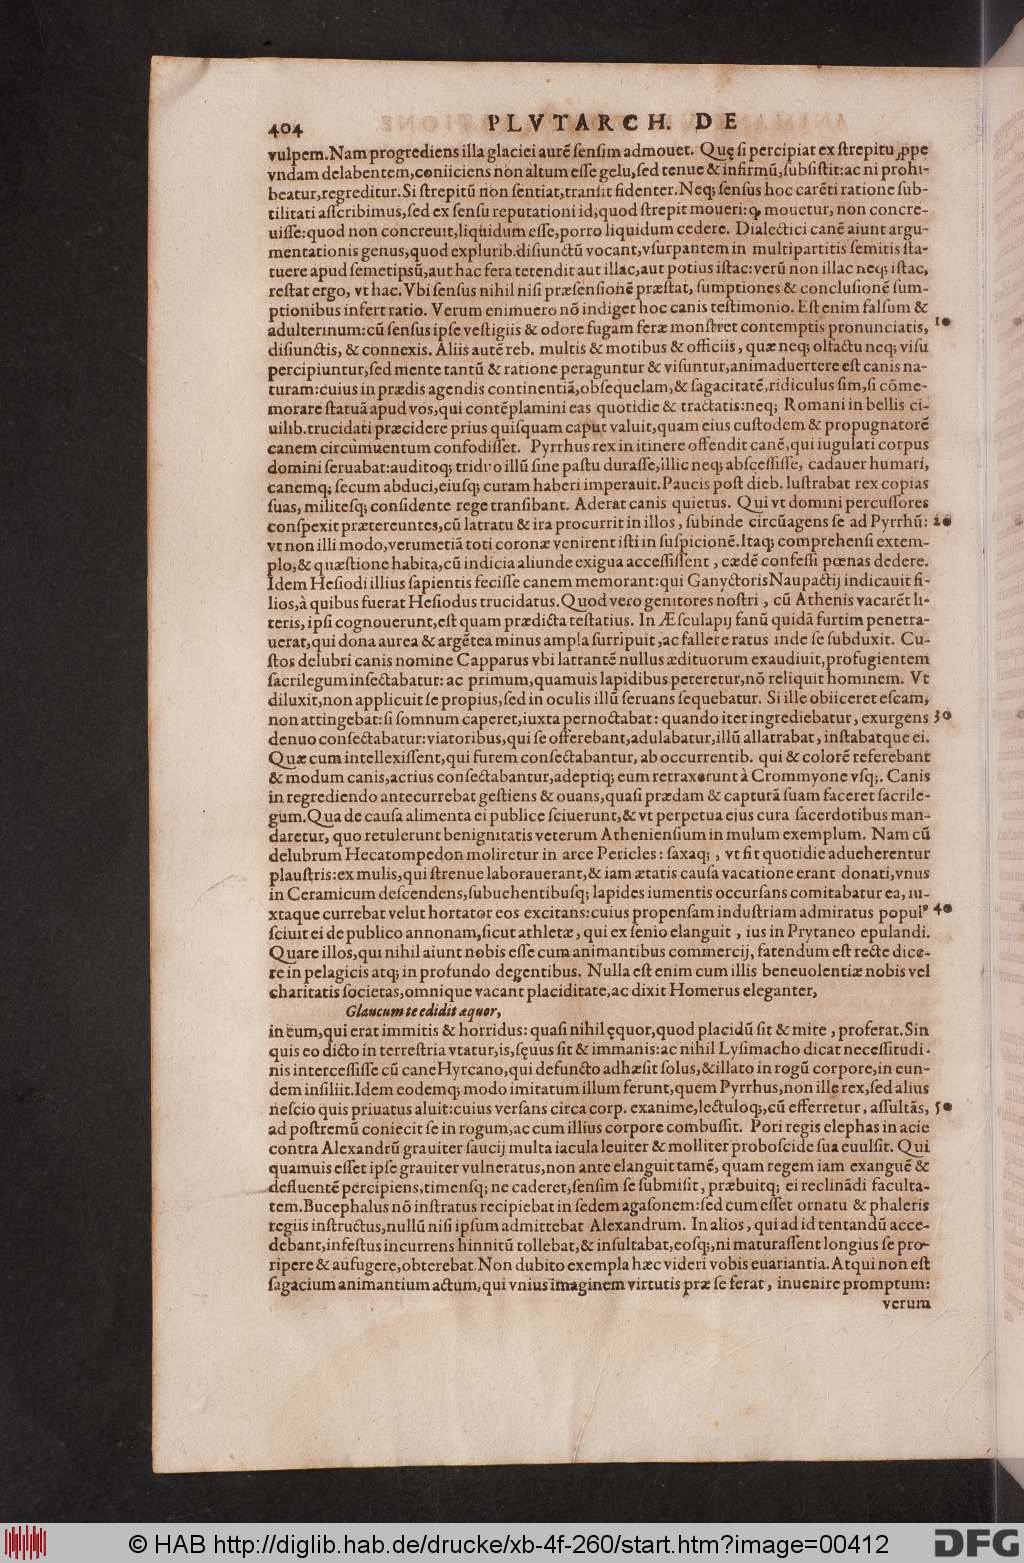 404 PLVTARCH. DE
vulpem. Nam progrediens illa glaciei aurẽ sensim admouet. Quę si percipiat ex strepitu ꝓppe
vndam delabentem, coniiciens non altum esse gelu, sed tenue & infirmũ, subsistit: ac ni prohi-
beatur, regreditur. Si strepitũ non sentiat, transit fidenter. Neq; sensus hoc carẽti ratione sub-
tilitati ascribimus, sed ex sensu reputationi id; quod strepit moueri: ꝙ mouetur, non concre-
uisse: quod non concreuit, liquidum esse, porro liquidum cedere. Dialectici canẽ aiunt argu-
mentationis genus, quod explurib. disiunctũ vocant, vsurpantem in multipartitis semitis sta-
tuere apud semetipsũ, aut hac fera tetendit aut illac, aut potius istac: verũ non illac neq; istac,
restat ergo, vt hac. Vbi sensus nihil nisi præsensionẽ præstat, sumptiones & conclusionẽ sum-
ptionibus infert ratio. Verum enimuero nõ indiget hoc canis testimonio. Est enim falsum &
adulterinum: cũ sensus ipse vestigiis & odore fugam feræ monstret contemptis pronunciatis, 10
disiunctis, & connexis. Aliis autẽ reb. multis & motibus & officiis, quæ neq; olfactu neq; visu
percipiuntur, sed mente tantũ & ratione peraguntur & visuntur, animaduertere est canis na-
turam: cuius in prædis agendis continentiã, obsequelam, & sagacitatẽ, ridiculus sim, si cõme-
morare statuã apud vos, qui contẽplamini eas quotidie & tractatis: neq; Romani in bellis ci-
uilib. trucidati præcidere prius quisquam caput valuit, quam eius custodem & propugnatorẽ
canem circumuentum confodisset. Pyrrhus rex in itinere offendit canẽ, qui iugulati corpus
domini seruabat: auditoq; triduo illũ sine pastu durasse, illic neq; abscessisse, cadauer humari,
canemq; secum abduci, eiusq; curam haberi imperauit. Paucis post dieb. lustrabat rex copias
suas, militesq; considente rege transibant. Aderat canis quietus. Qui vt domini percussores
conspexit prætereuntes, cũ latratu & ira procurrit in illos, subinde circũagens se ad Pyrrhũ: 20
vt non illi modo, verumetiã toti coronæ venirent isti in suspicionẽ. Itaq; comprehensi extem-
plo, & quæstione habita, cũ indicia aliunde exigua accessissent, cædẽ confessi pœnas dedere.
Idem Hesiodi illius sapientis fecisse canem memorant: qui Ganyctoris Naupactij indicauit fi-
lios, à quibus fuerat Hesiodus trucidatus. Quod vero genitores nostri, cũ Athenis vacarẽt li-
teris, ipsi cognouerunt, est quam prædicta testatius. In Æsculapij fanũ quidã furtim penetra-
uerat, qui dona aurea & argẽtea minus ampla surripuit, ac fallere ratus inde se subduxit. Cu-
stos delubri canis nomine Capparus vbi latrantẽ nullus ædituorum exaudiuit, profugientem
sacrilegum insectabatur: ac primum, quamuis lapidibus peteretur, nõ reliquit hominem. Vt
diluxit, non applicuit se propius, sed in oculis illũ seruans sequebatur. Si ille obiiceret escam,
non attingebat: si somnum caperet, iuxta pernoctabat: quando iter ingrediebatur, exurgens 30
denuo consectabatur: viatoribus, qui se offerebant, adulabatur, illũ allatrabat, instabatque ei.
Quæ cum intellexissent, qui furem consectabantur, ab occurrentib. qui & colorẽ referebant
& modum canis, acrius consectabantur, adeptiq; eum retraxerunt à Crommyone vsq;. Canis
in regrediendo antecurrebat gestiens & ouans, quasi prædam & capturã suam faceret sacrile-
gum. Qua de causa alimenta ei publice sciuerunt, & vt perpetua eius cura sacerdotibus man-
daretur, quo retulerunt benignitatis veterum Atheniensium in mulum exemplum. Nam cũ
delubrum Hecatompedon moliretur in arce Pericles: saxaq;, vt fit quotidie adueherentur
plaustris: ex mulis, qui strenue laborauerant, & iam ætatis causa vacatione erant donati, vnus
in Ceramicum descendens, subuehentibusq; lapides iumentis occursans comitabatur ea, iu-
xtaque currebat velut hortator eos excitans: cuius propensam industriam admiratus populꝰ 40
sciuit ei de publico annonam, sicut athletæ, qui ex senio elanguit, ius in Prytaneo epulandi.
Quare illos, qui nihil aiunt nobis esse cum animantibus commercij, fatendum est recte dice-
re in pelagicis atq; in profundo degentibus. Nulla est enim cum illis beneuolentiæ nobis vel
charitatis societas, omnique vacant placiditate, ac dixit Homerus eleganter,
Glaucum te edidit æquor,
in eum, qui erat immitis & horridus: quasi nihil ęquor, quod placidũ sit & mite, proferat. Sin
quis eo dicto in terrestria vtatur, is, sęuus sit & immanis: ac nihil Lysimacho dicat necessitudi-
nis intercessisse cũ cane Hyrcano, qui defuncto adhæsit solus, & illato in rogũ corpore, in eun-
dem insiliit. Idem eodemq; modo imitatum illum ferunt, quem Pyrrhus, non ille rex, sed alius
nescio quis priuatus aluit: cuius versans circa corp. exanime, lectuloq;, cũ efferretur, assultãs, 50
ad postremũ coniecit se in rogum, ac cum illius corpore combussit. Pori regis elephas in acie
contra Alexandrũ grauiter saucij multa iacula leuiter & molliter proboscide sua euulsit. Qui
quamuis esset ipse grauiter vulneratus, non ante elanguit tamẽ, quam regem iam exanguẽ &
defluentẽ percipiens, timensq; ne caderet, sensim se submisit, præbuitq; ei reclinãdi faculta-
tem. Bucephalus nõ instratus recipiebat in sedem agasonem: sed cum esset ornatu & phaleris
regiis instructus, nullũ nisi ipsum admittebat Alexandrum. In alios, qui ad id tentandũ acce-
debant, infestus incurrens hinnitũ tollebat, & insultabat, eosq;, ni maturassent longius se pro-
ripere & aufugere, obterebat. Non dubito exempla hæc videri vobis euariantia. Atqui non est
sagacium animantium actum, qui vnius imaginem virtutis præ se ferat, inuenire promptum:
verum
© HAB http://diglib.hab.de/drucke/xb-4f-260/start.htm?image=00412
DFG